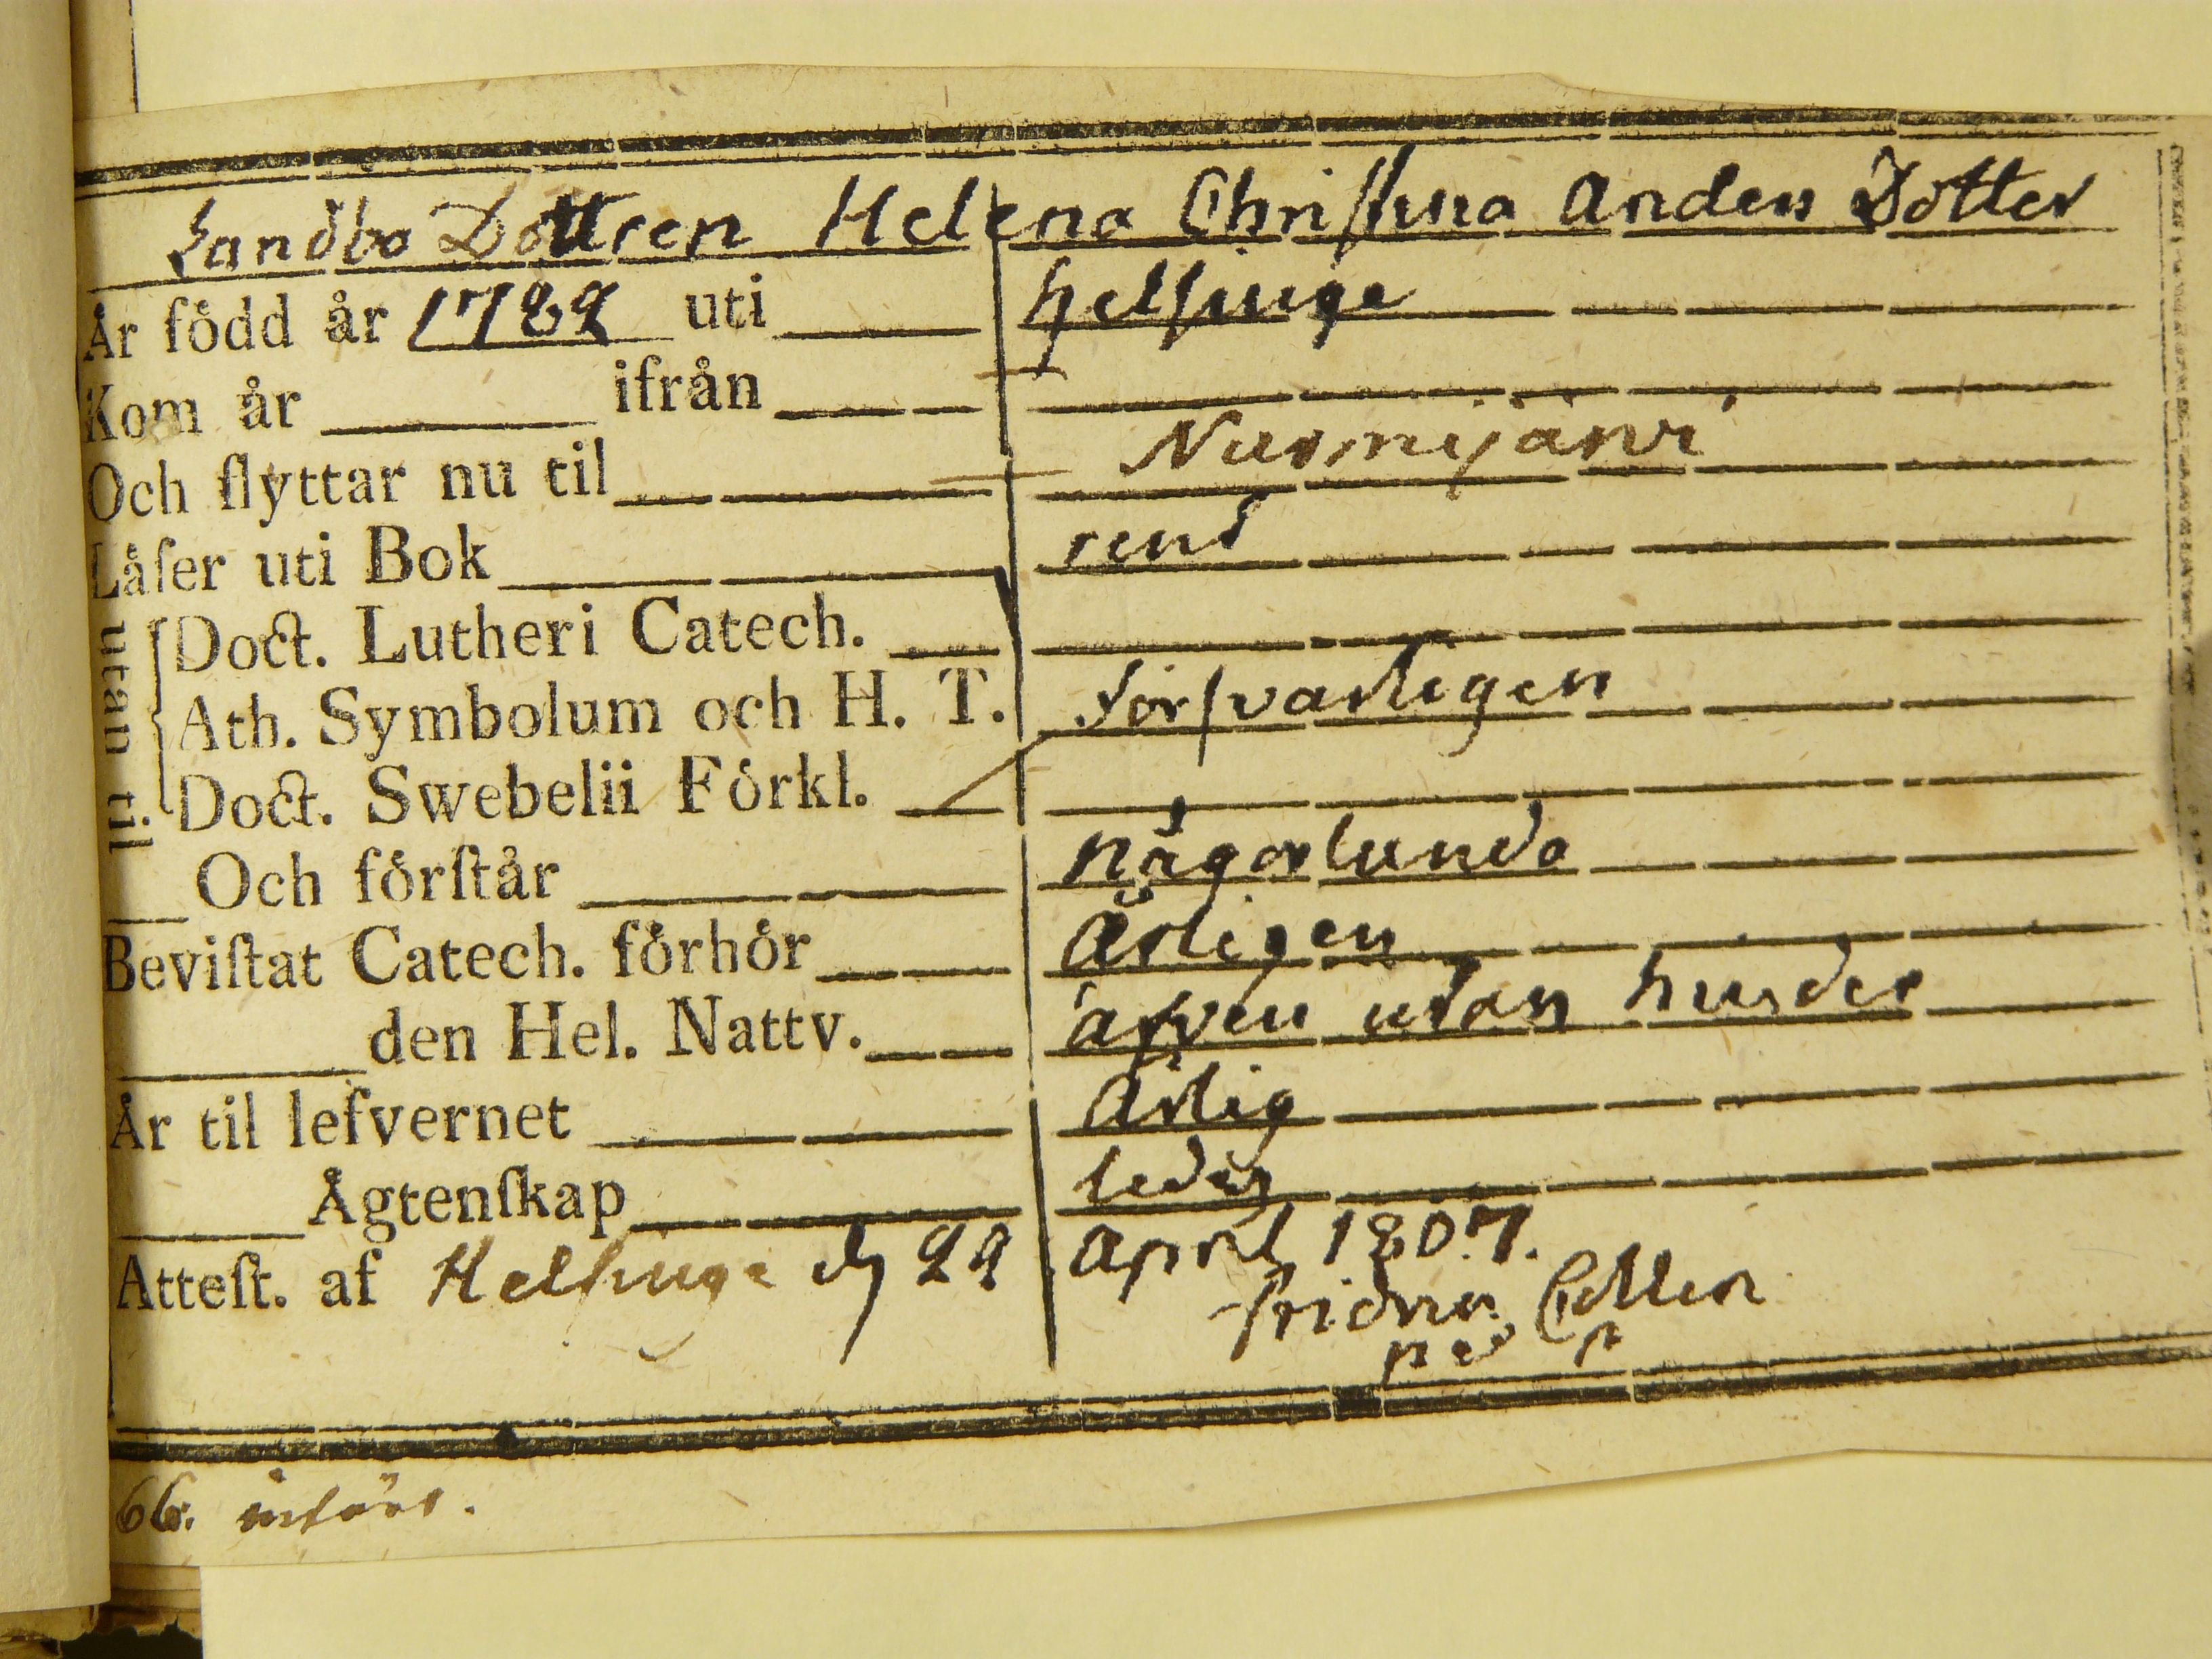 Landbo Dottren Helena Christina Anders Dotter
Är född år 1782 uti Helsinge
Kom år ifrån
Och flyttar nu til Nurmijärvi
Låſer uti Bok rent
utan til.
Doct. Lutheri Catech.
Ath. Symbolum och H. T. Försvarligen
Doct. Swebelii Förkl.
Och förſtår någorlunda
Beviſtat Catech. förhör Årligen
den Hel. Nattv. äfven utan hinder
Är til lefvernet Ärlig
Ägtenſkap ledig
Atteſt. af Helsinge d 22 April 1807.
66. infört.